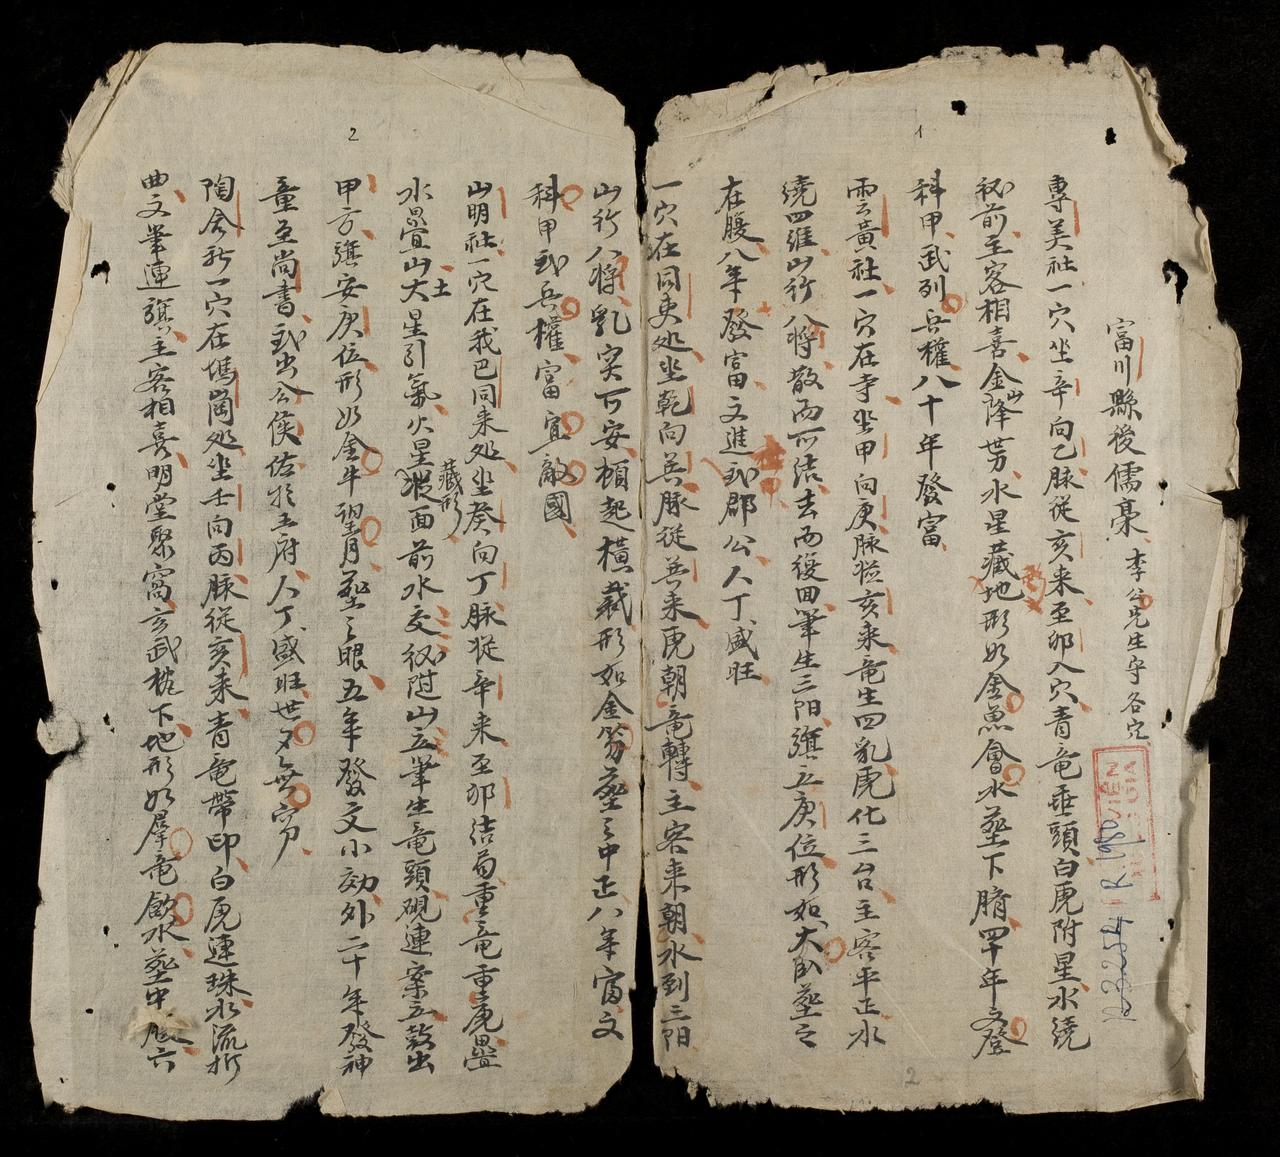 1
富川縣後儒毫 李公先生守各穴
專美社一穴坐辛向乙脉從亥来至卯入穴青竜垂頭白虎附星水繞
砂前主客相喜金山降世水星藏地形如金魚會水塟下腈四十年文登
科甲武列兵權八十年發富
雲黃社一穴在寺坐甲向庚脉從亥来竜生四乳虎化三台主客平正水
繞四維山行八將散而所結去而復回筆生三阳旗立庚位形如大臥塟之
在腹八年發富文進武郡公人丁盛旺
一穴在同吏処坐乾向巽脉從巽来虎朝竜轉主客来朝水到三阳
2
2
山行八將乳突可安頓起橫裁形如金笏塟之中正八年富文
科甲武兵權富宜敵國
山明社一穴在我巴同来処坐癸向丁脉從辛来至卯結局重竜重虎疊
水疊山大土星引氣火星藏形面前水交砂附山立筆生竜頭硯連案立鼓出
甲方旗安庚位形如金牛望月塟之眼五年發文小効外二十年發神
童至尚書武出公侯佑於王府人丁盛旺世夕無窮
陶舍社一穴在塢崗処坐壬向丙脉從亥来青竜帶印白虎連珠水流折
曲文筆連旗主客相喜明堂聚窩玄武趁下地形如群竜飲水塟中 六